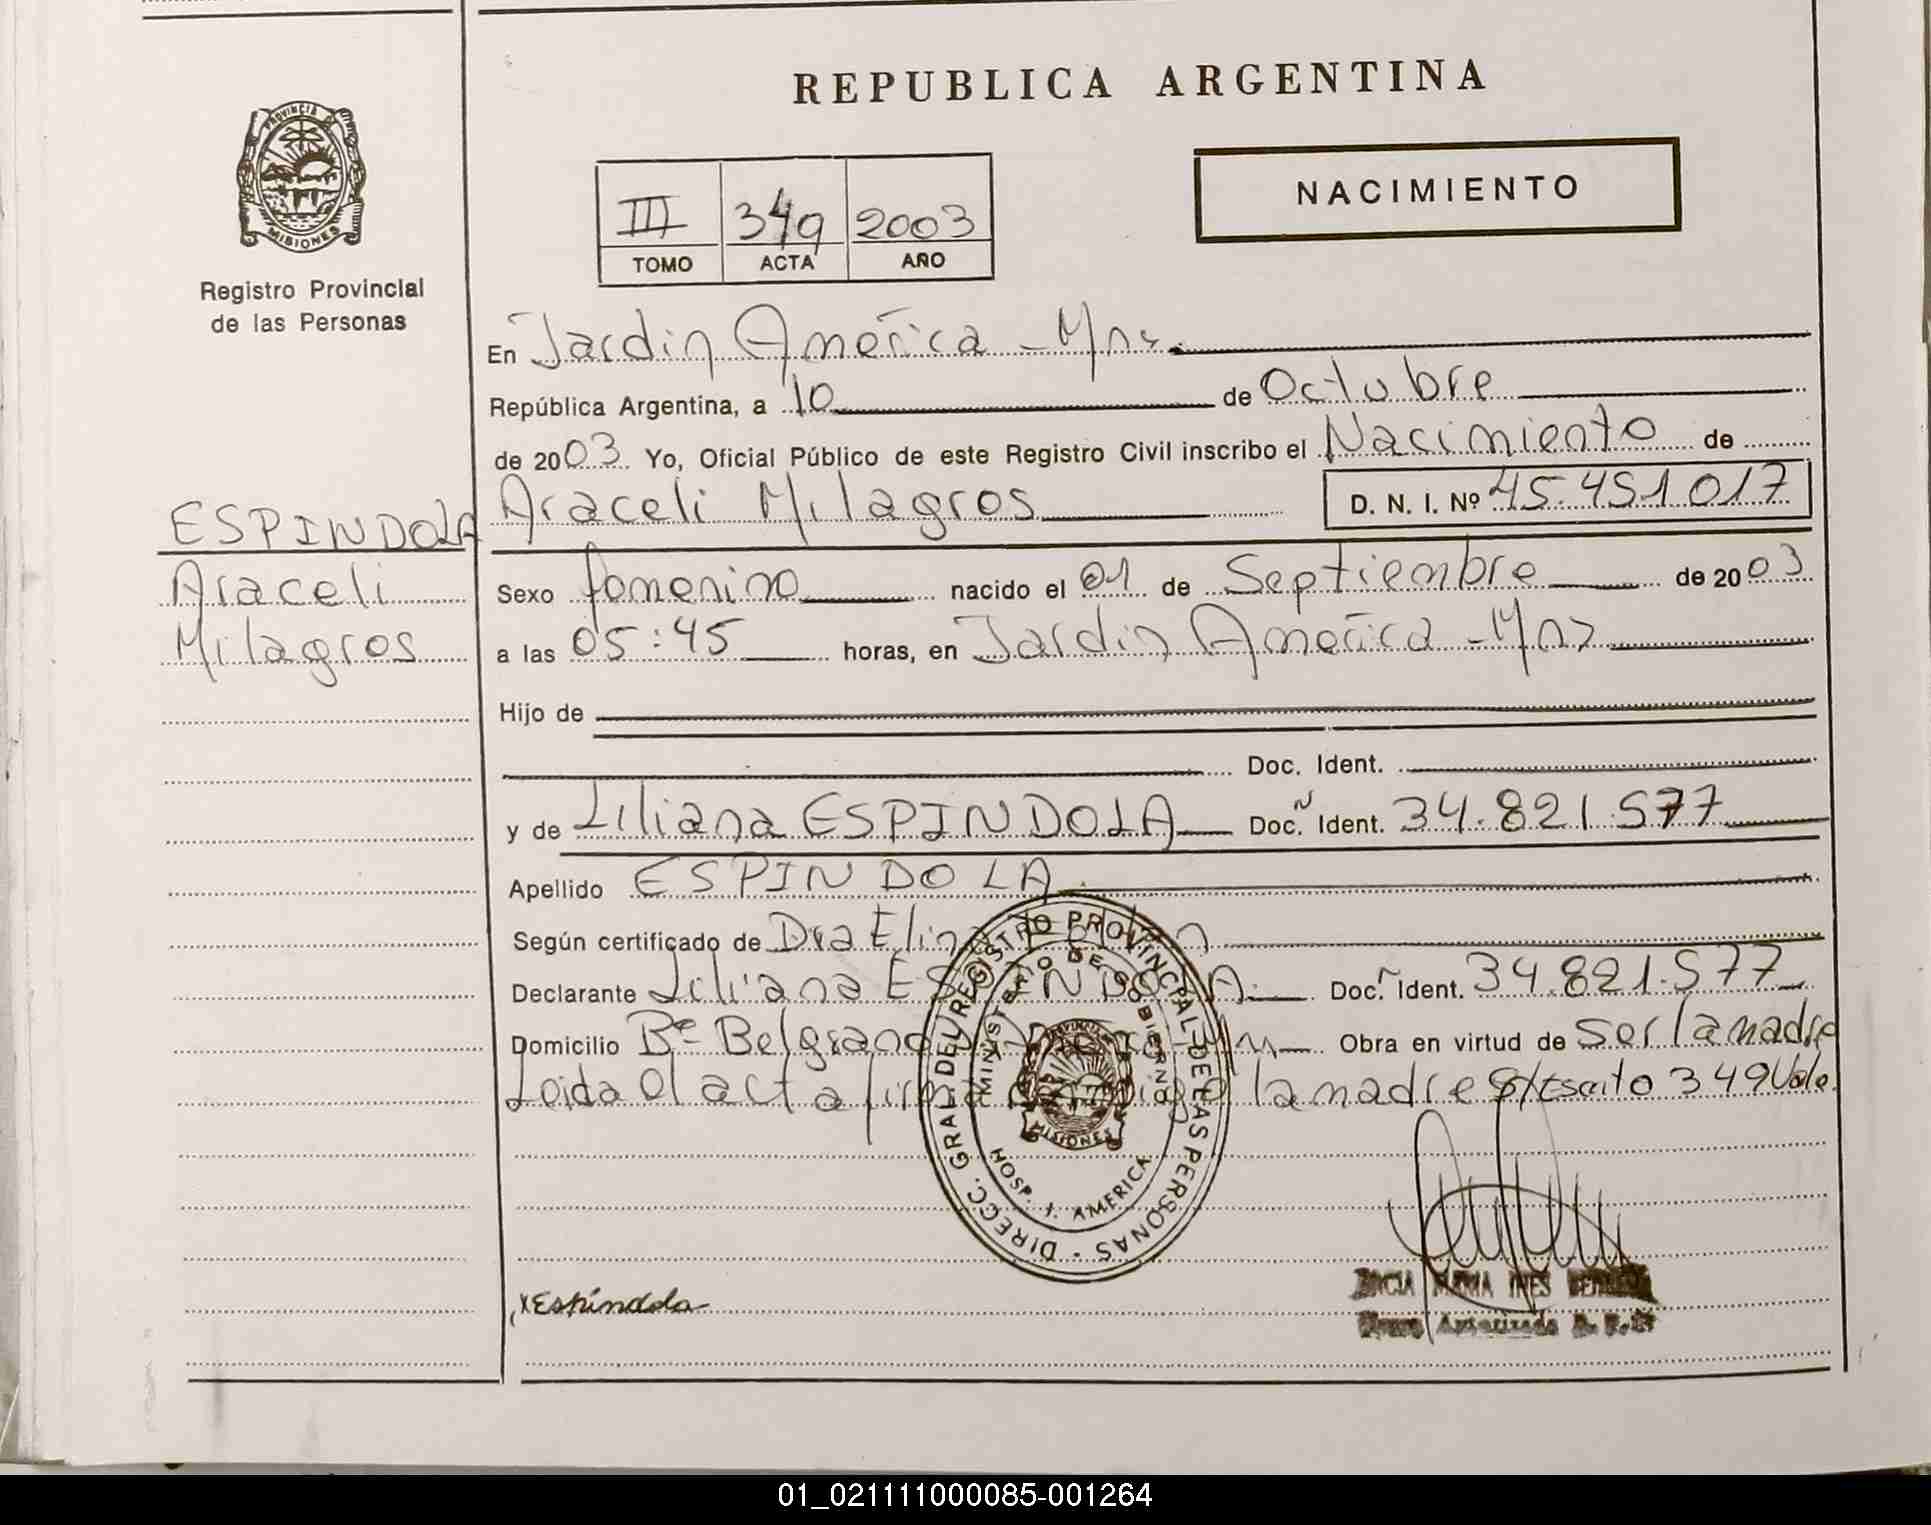 REPUBLICA ARGENTINA
PROVINCIA DE
MISIONES
Registro Provincial
de las Personas
NACIMIENTO
III 349 2003
TOMO ACTA AÑO
En Jardin América - Mns.
República Argentina, a 10 de Octubre
de 2003. Yo, Oficial Público de este Registro Civil inscribo el Nacimiento de
ESPINDOLA
Araceli
Milagros
Araceli Milagros D. N. I. Nº 45.451.017
Sexo femenino nacido el 01 de Septiembre de 2003
a las 05:45 horas, en Jardin América - Mns
Hijo de
Doc. Ident.
y de Liliana ESPINDOLA Doc. Ident. 34.821.577
Apellido ESPINDOLA
Según certificado de Dra Elina
Declarante Liliana ESPINDOLA Doc. Ident. 34.821.577
Domicilio Bº Belgrano Obra en virtud de Ser la madre
Leida el acta firma la madre S/Escrito 349 Vale.
DIRECC. GRAL. DEL REGISTRO PROVINCIAL DE LAS PERSONAS
MINISTERIO DE GOBIERNO
MISIONES
HOSP. J. AMERICA
x Espíndola
MARIA INES
01_021111000085-001264